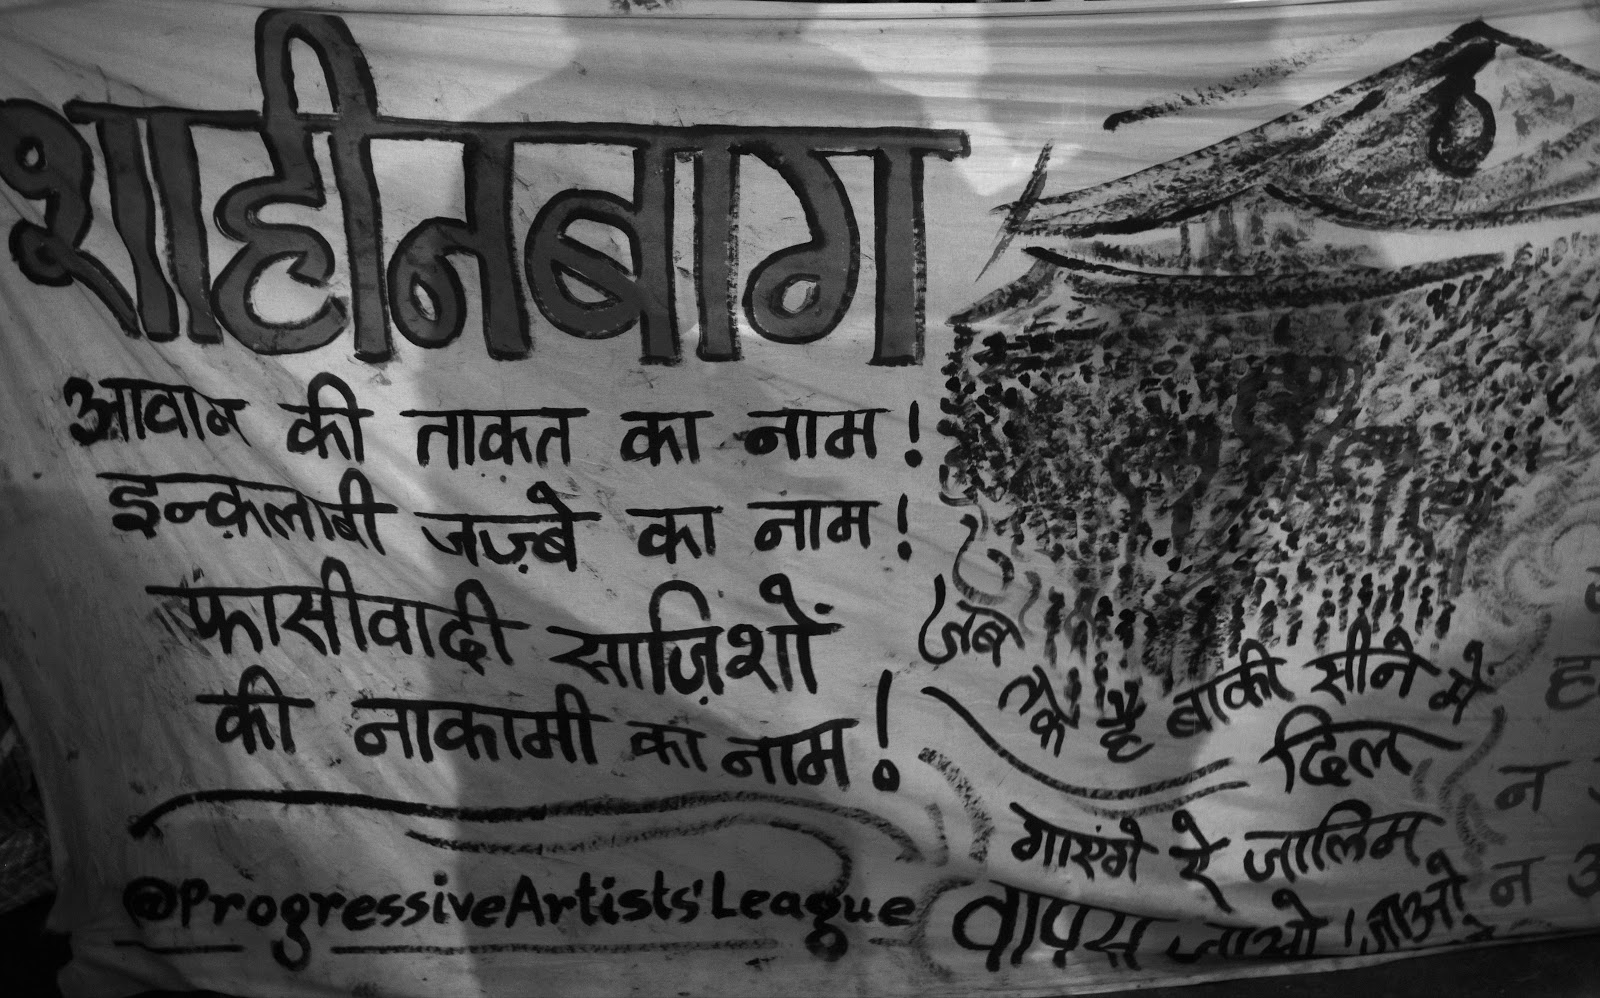 शाहीनबाग
आवाम की ताकत का नाम!
इन्क़लाबी जज़्बे का नाम!
फासीवादी साज़िशों
की नाकामी का नाम!
@ProgressiveArtists'League
जब तक है बाकी सीने में
दिल
गाएंगे ऐ जालिम
वापस जाओ! जाओ
न
न